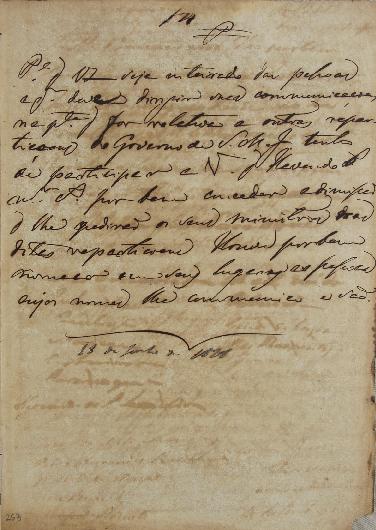 P.ª q VS seja inteirado das pessoas
a q.m deve dirigir suas communicaçoens
na p.te q for relativa a outras repar
ticoens do Governo de S. M. F. tenho
de participar a V. q Havendo
por bem conceder a demissaõ
q lhe pediraõ os seus ministros das
ditas repartiçoens Houve por bem
nomear em seus lugares as pessoas
cujos nomes lhe communico e saõ.
18 de Junho de
253